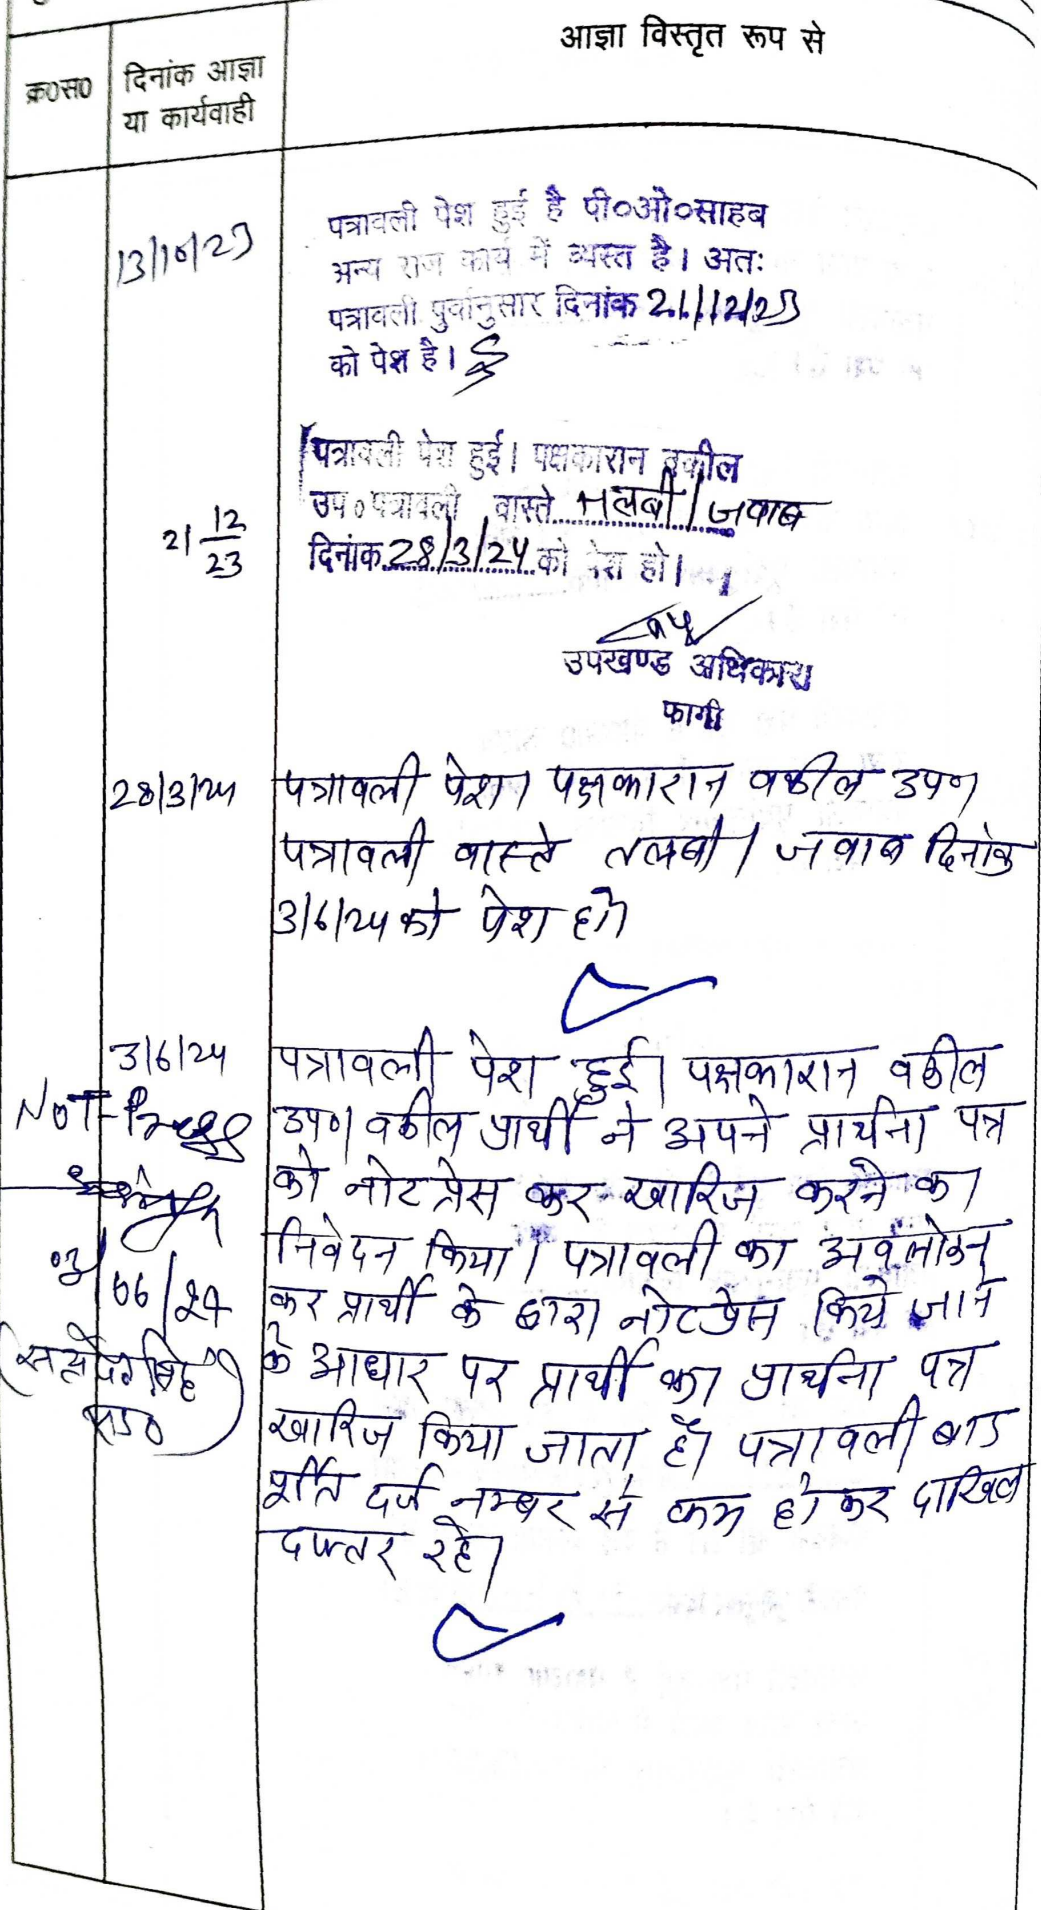 क्र०स०
दिनांक आज्ञा
या कार्यवाही
आज्ञा विस्तृत रूप से
13/10/23
पत्रावली पेश हुई है पी०ओ०साहब
अन्य राज कार्य में व्यस्त है। अतः
पत्रावली पुर्वानुसार दिनांक 21/12/23
को पेश है।
21 12/23
पत्रावली पेश हुई। पक्षकारान वकील
उप० पत्रावली वास्ते तलबी/जवाब
दिनांक 28/3/24 को पेश हो।
उपखण्ड अधिकारी
फागी
28/3/24
पत्रावली पेश। पक्षकारान वकील उप०।
पत्रावली वास्ते तलबी/जवाब दिनांक
3/6/24 को पेश हो।
3/6/24
पत्रावली पेश हुई। पक्षकारान वकील
उप०। वकील प्रार्थी ने अपने प्रार्थना पत्र
को नोटप्रेस कर खारिज करने का
निवेदन किया। पत्रावली का अवलोकन
कर प्रार्थी के द्वारा नोटप्रेस किये जाने
के आधार पर प्रार्थी का प्रार्थना पत्र
खारिज किया जाता है। पत्रावली बाद
दर्ज नम्बर से कम होकर दाखिल
दफ्तर रहे।
NOT Press
03/06/24